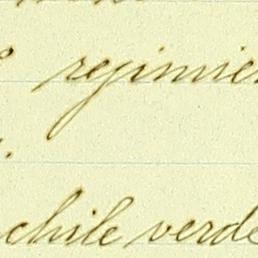 regimie
chile verde